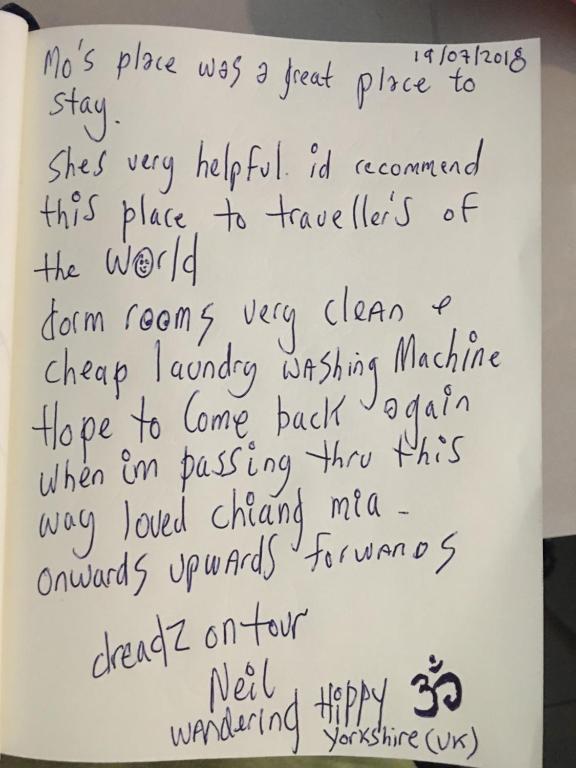 19/07/2018
Mo's place was a great place to
stay.
Shes very helpful. id recommend
this place to traveller's of
the World
dorm rooms very clean &
cheap laundry washing Machine
Hope to Come back again
when im passing thru this
way loved chiang mia -
onwards upwards forwards
dreadz on tour
Neil
wandering Hippy ॐ
Yorkshire (UK)